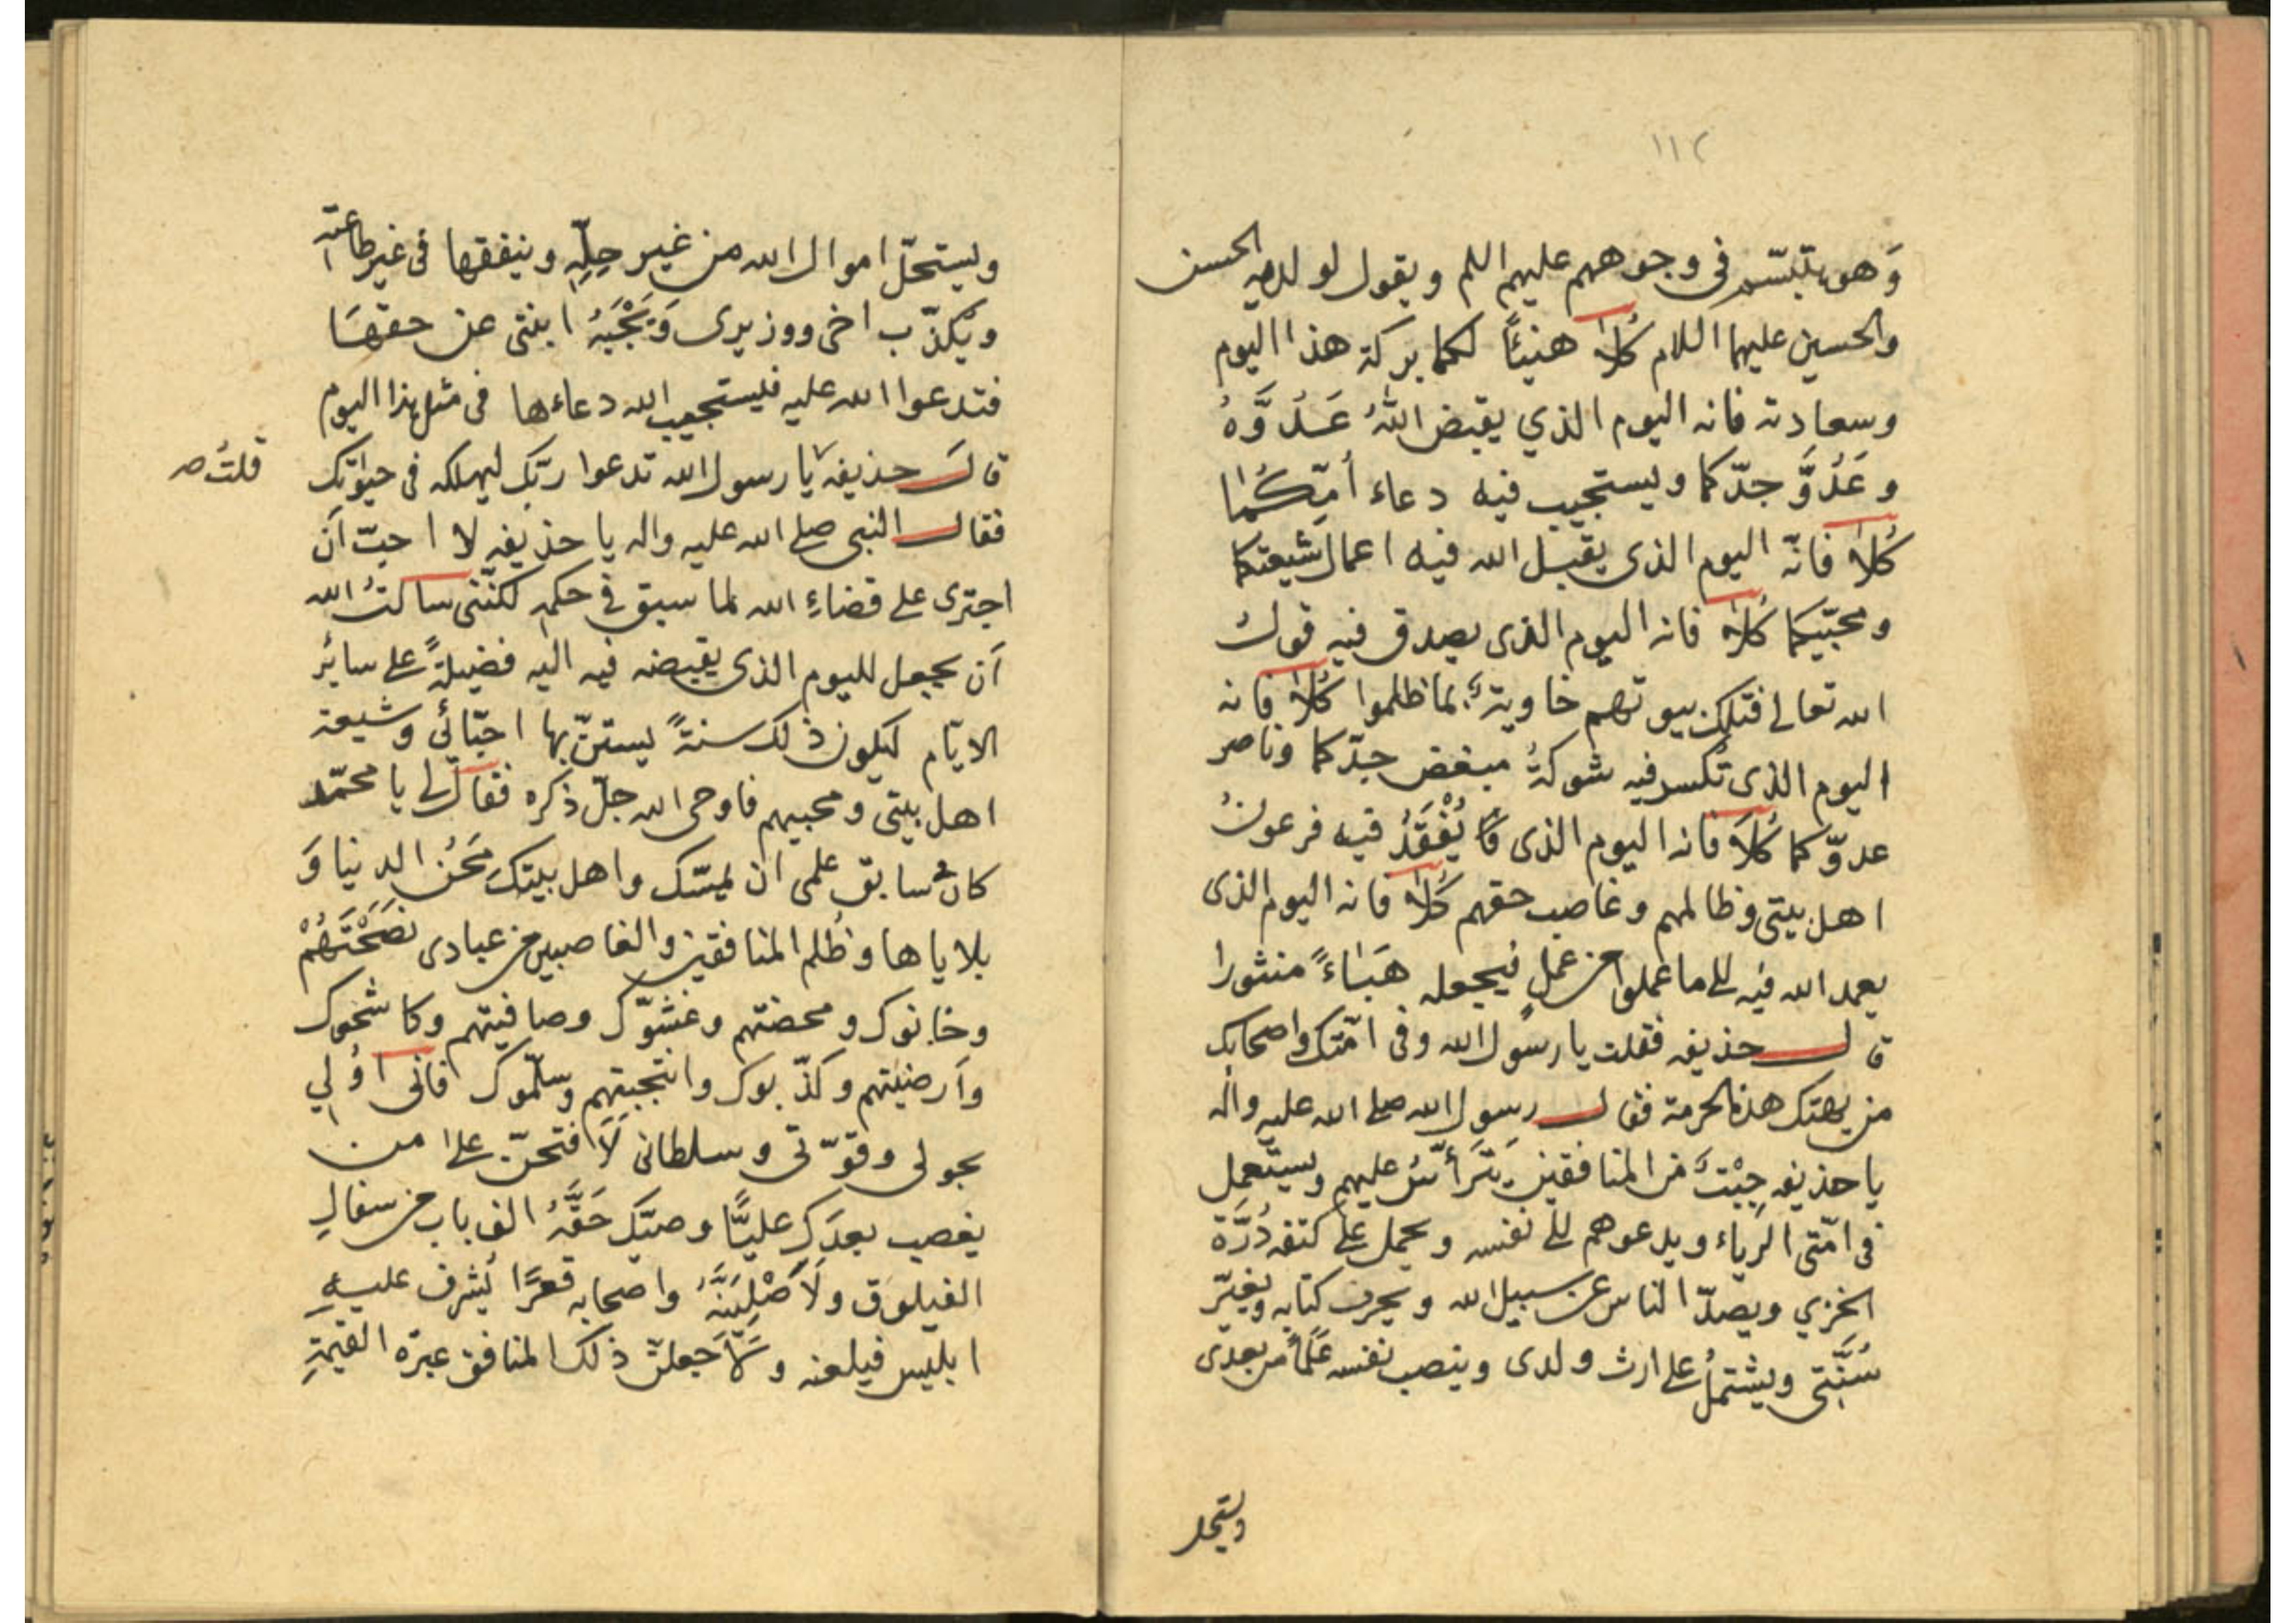 ١١٢
وَهو يتبسّم فى وجوههم عليهم اللم ويقول لولديه الحسن
والحسين عليهما اللام كُلا هنيئًا لكما بركة هذا اليوم
وسعادته فانه اليوم الذي يقبض اللهُ عَدُوَّهُ
وعَدُوَّ جدّكما ويستجيب فيه دعاء أمّكُما
كُلا فانّه اليوم الذى يقبل الله فيه اعمال شيعتكما
ومحبّيكما كُلا فانه اليوم الذى يصدق فيه قول
الله تعالى فتلك بيوتهم خاوية بما ظلموا كُلا فانه
اليوم الذى تُكسر فيه شوكةُ مبغض جدّكما وناصر
عدوّكما كُلَا فانه اليوم الذى يُفْقَدُ فيه فرعونُ
اهل بيتى وظالمهم وغاصب حقهم كُلا فانه اليوم الذى
يعمد الله فيه الى ما عملوا من عملٍ فيجعله هَبَاءً منثورا
قال حذيفه فقلت يا رسول الله وفى امّتك واصحابك
من يهتك هذه الحرمة فقال رسول الله صلى الله عليه واله
يا حذيفه جِبْتٌ من المنافقين يَتَرَأّسُ عليهم ويستعمل
فى امّتى الرياء ويدعوهم الى نفسه ويحمل على كتفه دُرَّة
الخزي ويصدّ الناس عن سبيل الله ويحرف كتابه ويغيّر
سُنَّتى ويشتملُ على ارث ولدى وينصب نفسه عَلَمًا من بعدى
ويستحل
ويستحلّ اموال الله من غير حِلِّهِ وينفقها فى غير طاعته
ويكذّب اخى ووزيرى وَ ابنتى عن حقهَا
فتدعوا الله عليه فيستجيب الله دعاءها فى مثل هذا اليوم
قال حذيفه يا رسول الله تدعوا ربّك ليهلكه فى حيٰوتك
قلتُ صه
فقال النبى صلى الله عليه واله يا حذيفه لا احبّ اَن
اجترى على قضاءِ الله لما سبق فى حكمه لكنّنى سالتُ الله
اَن يجعل لليوم الذى يقبضه فيه اليه فضيلةً على سائر
الايّام ليكون ذلك سنةً يستنّ بها احبّائى وشيعة
اهل بيتى ومحبيهم فاوحى الله جلّ ذكره فقال لى يا محمّد
كان فى سابق علمى ان تمسّك واهل بيتك مَحَنُ الدنيا وَ
بلاياها وظُلم المنافقين والغاصبين من عبادى نَصَحْتَهُمْ
وخانوك ومحضتهم وغشّوك وصافيتهم وكاشحوك
وارضيتهم وكذّبوك وانتجبتهم وسلّموك فانى اوُلى
بحولى وقوّتى وسلطانى لَاَفتحنّ على من
يغصب بعدَك عليًّا وصيّك حَقَّهُ الف باب من سفالِ
الفيلوق ولَاَصْلِيَنَّهُ واصحابه قعرًا يُشرف عليهِ
ابليس فيلعنه ولَاَجعلنّ ذلك المنافق عبرة القيٰمةِ